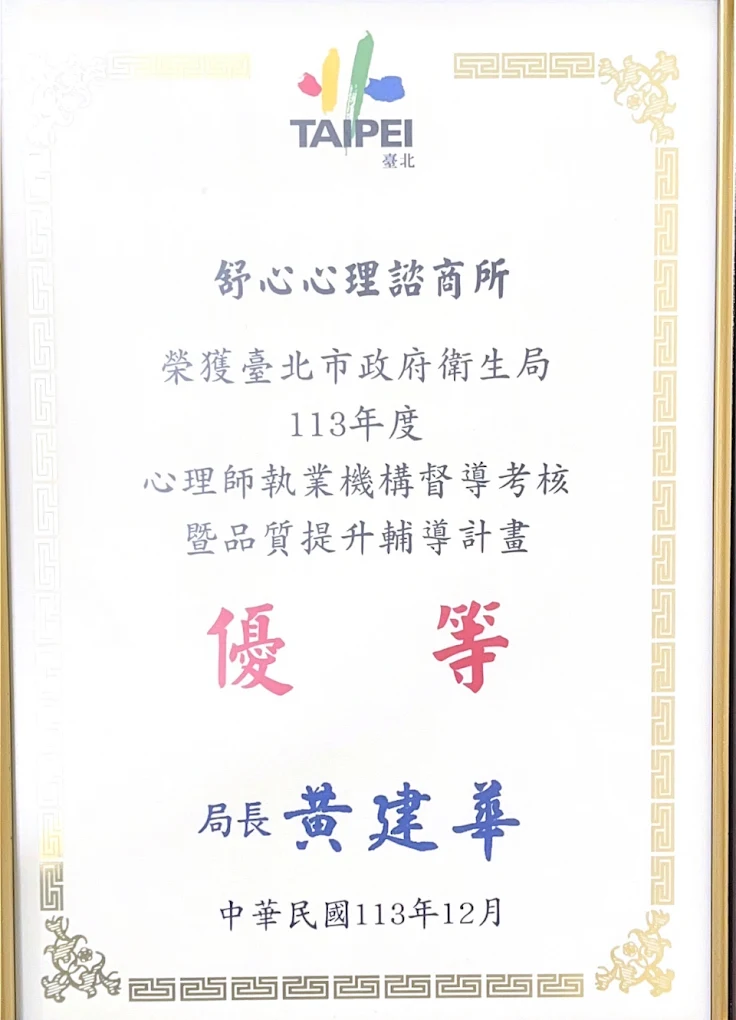 TAIPEI
臺北
舒心心理諮商所
榮獲臺北市政府衛生局
113年度
心理師執業機構督導考核
暨品質提升輔導計畫
優等
局長 黃建華
中華民國113年12月